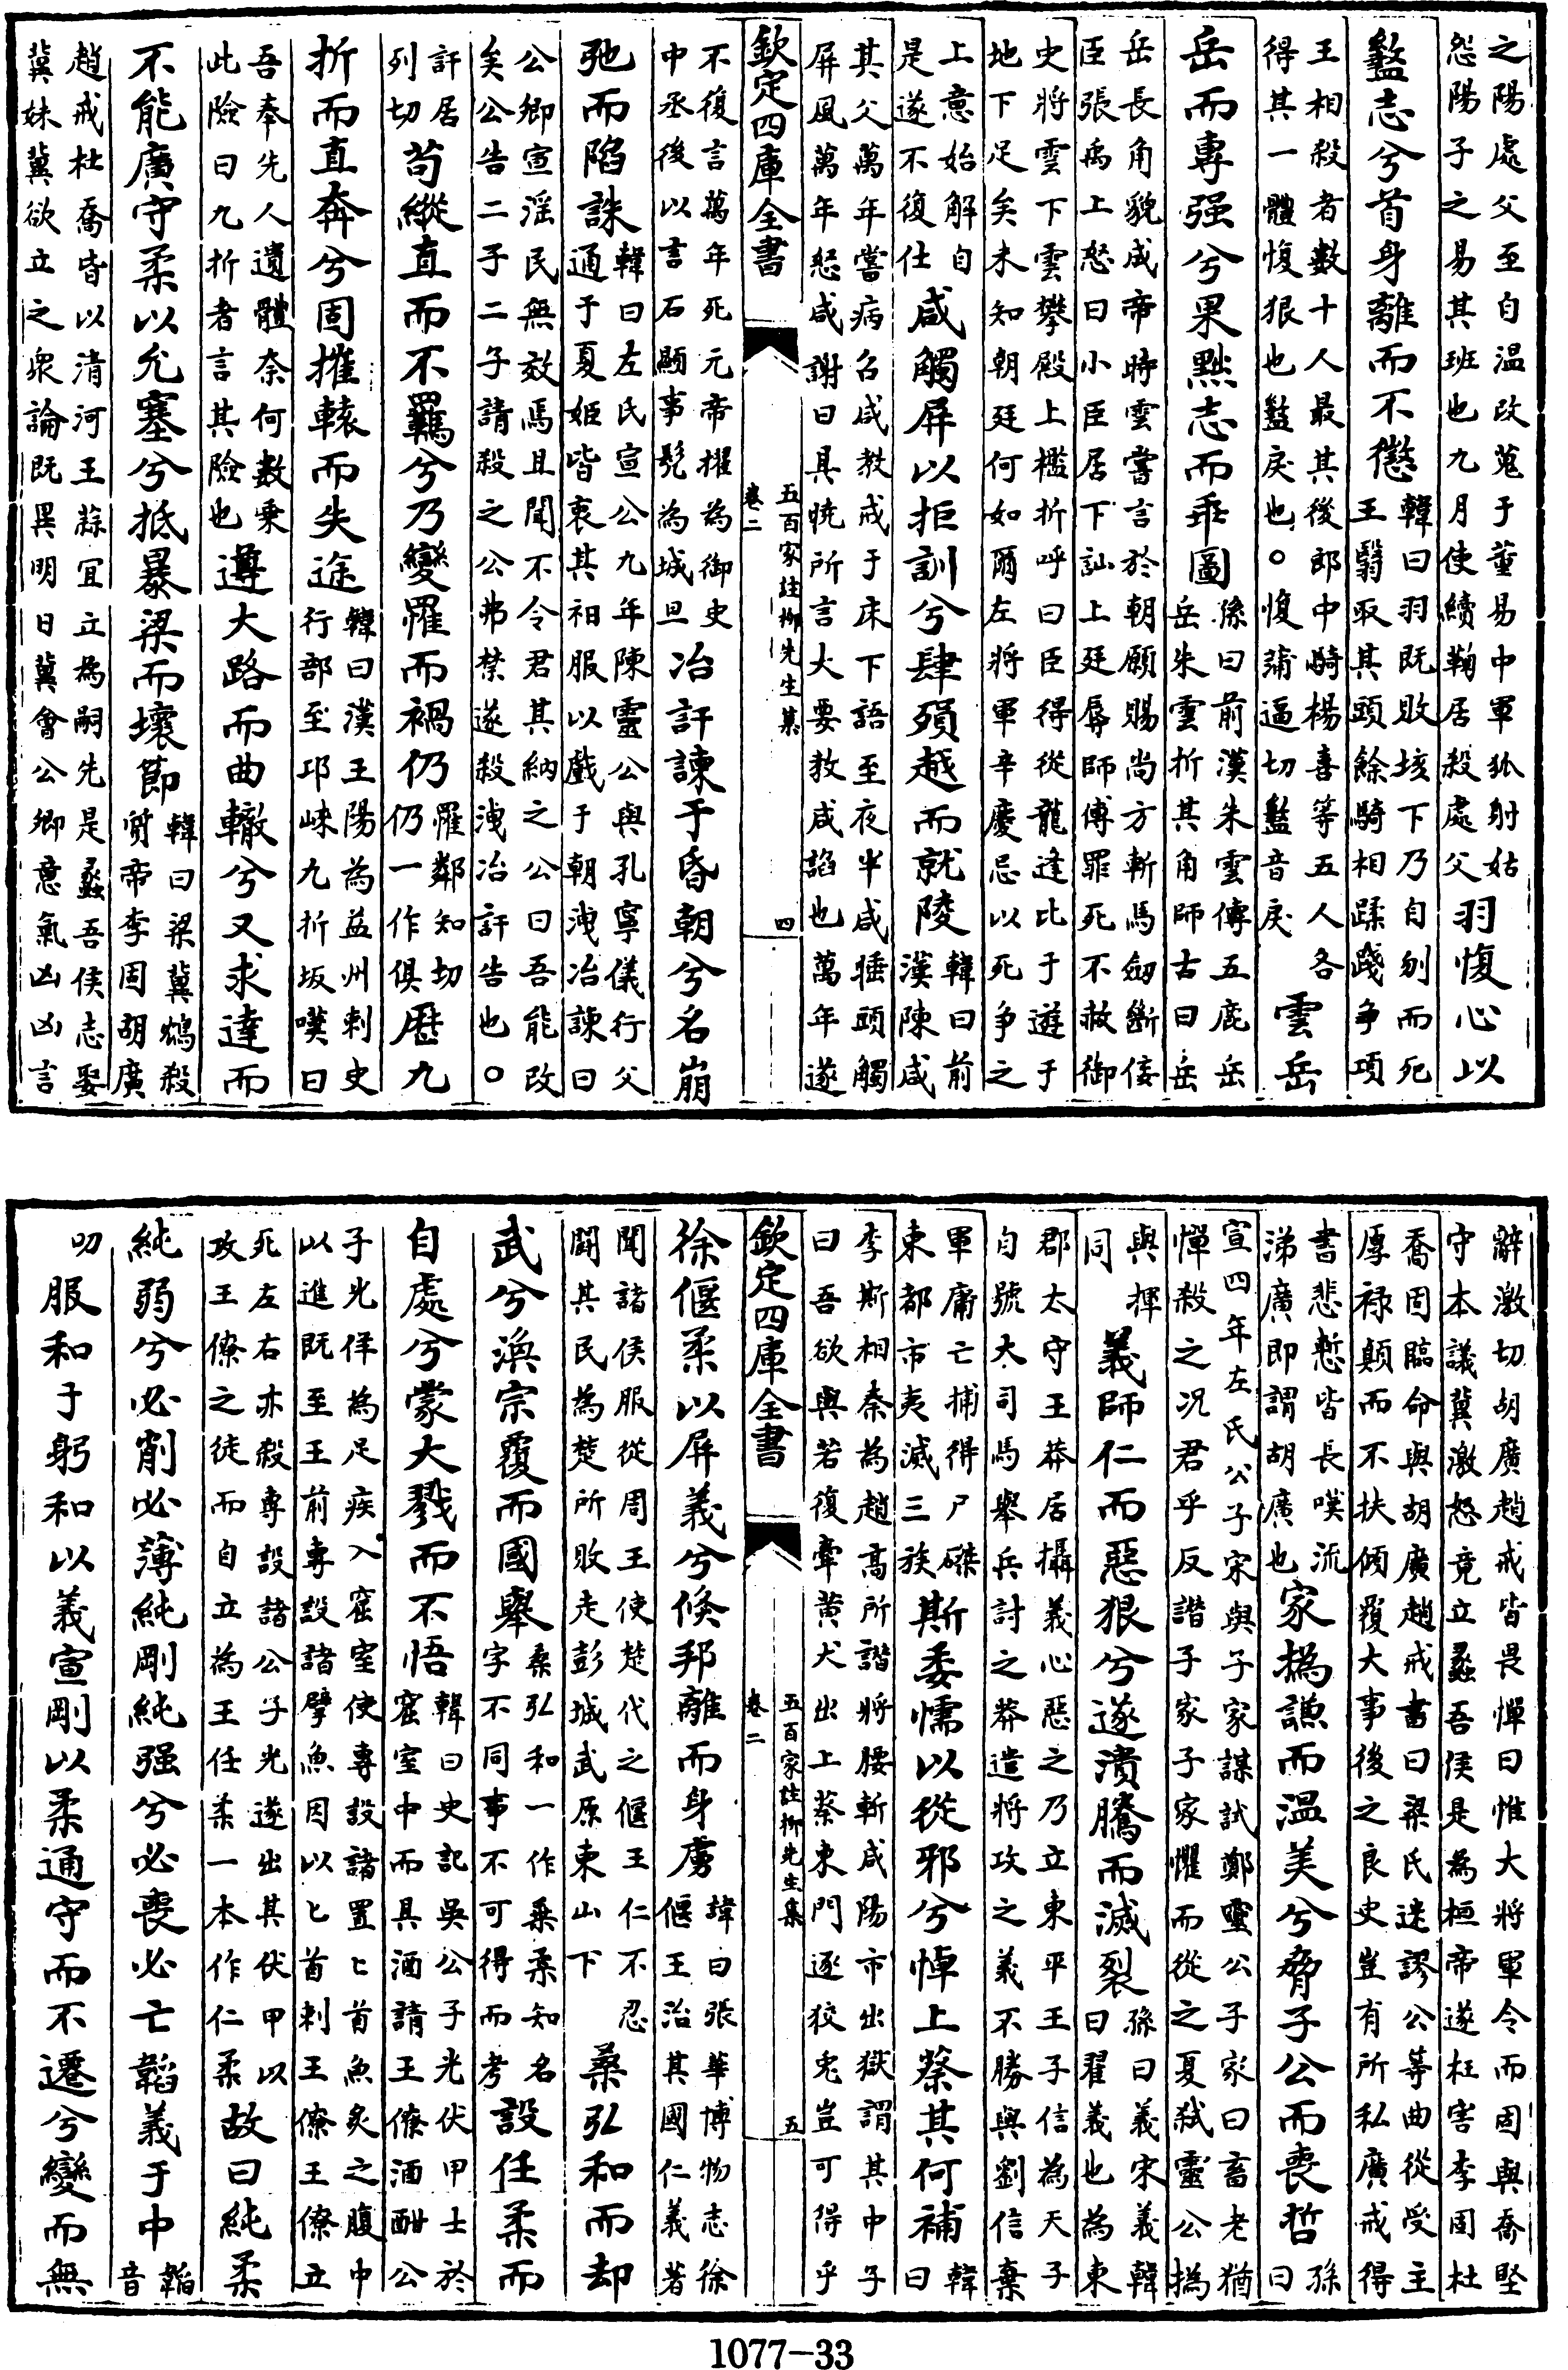 之陽處父至自温改蒐于董易中軍狐射姑
怨陽子之易其班也九月使續鞫居殺處父羽愎心以
盭志兮首身離而不懲韓曰羽既敗垓下乃自刎而死
王翳取其頭餘騎相蹂踐争項
王相殺者數十人最其後郎中騎楊喜等五人各
得其一體愎狠也盭戾也○愎蒲逼切盭音戾雲岳
岳而專强兮果黜志而乖圖孫曰前漢朱雲傳五鹿岳
岳朱雲折其角師古曰岳
岳長角貌成帝時雲嘗言於朝願賜尚方斬馬劒斷佞
臣張禹上怒曰小臣居下訕上廷辱師傅罪死不赦御
史將雲下雲攀殿上檻折呼曰臣得從龍逢比干遊于
地下足矣未知朝廷何如爾左將軍辛慶忌以死争之
上意始解自
是遂不復仕咸觸屏以拒訓兮肆殞越而就陵韓曰前
漢陳咸
其父萬年嘗病召咸教戒于床下語至夜半咸睡頭觸
屏風萬年怒咸謝曰具曉所言大要教咸謟也萬年遂
欽定四庫全書 五百家註柳先生集
卷二 四
不復言萬年死元帝擢為御史
中丞後以言石顯事髡為城旦冶訐諫于昏朝兮名崩
弛而陷誅韓曰左氏宣公九年陳靈公與孔寧儀行父
通于夏姬皆衷其衵服以戲于朝洩冶諫曰
公卿宣淫民無效焉且聞不令君其納之公曰吾能改
矣公告二子二子請殺之公弗禁遂殺洩冶訐告也○
訐居
列切苟縱直而不羈兮乃變罹而禍仍罹鄰知切
仍一作俱歷九
折而直奔兮固摧轅而失途韓曰漢王陽為益州刺史
行部至邛崍九折坂嘆曰
吾奉先人遺體奈何數乗
此險曰九折者言其險也遵大路而曲轍兮又求達而
不能廣守柔以允塞兮抵暴梁而壞節韓曰梁冀鴆殺
質帝李固胡廣
趙戒杜喬皆以清河王蒜宜立為嗣先是蠡吾侯志娶
冀妹冀欲立之衆論既異明日冀會公卿意氣凶凶言
辭激切胡廣趙戒皆畏憚曰惟大將軍令而固與喬堅
守本議冀激怒竟立蠡吾侯是為桓帝遂枉害李固杜
喬固臨命與胡廣趙戒書曰梁氏迷謬公等曲從受主
厚禄顛而不扶傾覆大事後之良史豈有所私廣戒得
書悲慙皆長嘆流
涕廣即謂胡廣也家撝謙而温美兮脅子公而喪哲孫
曰
宣四年左氏公子宋與子家謀試鄭靈公子家曰畜老猶
憚殺之况君乎反譖子家子家懼而從之夏弑靈公撝
與揮
同義師仁而惡狠兮遂潰騰而滅裂孫曰義宋義韓
曰翟義也為東
郡太守王莽居攝義心惡之乃立東平王子信為天子
自號大司馬舉兵討之莽遣將攻之義不勝與劉信棄
軍庸亡捕得尸磔
東都市夷滅三族斯委懦以從邪兮悼上蔡其何補韓
曰
李斯相秦為趙高所譖將腰斬咸陽市出獄謂其中子
曰吾欲與若復牽黄犬出上蔡東門逐狡兎豈可得乎
欽定四庫全書 五百家註柳先生集
卷二 五
徐偃柔以屏義兮倐邦離而身虜諱曰張華博物志徐
偃王治其國仁義著
聞諸侯服從周王使楚代之偃王仁不忍
鬭其民為楚所敗走彭城武原東山下桑弘和而却
武兮渙宗覆而國舉桑弘和一作桑柔知名
字不同事不可得而考設任柔而
自處兮蒙大戮而不悟韓曰史記吳公子光伏甲士於
窟室中而具酒請王僚酒酣公
子光佯為足疾入窟室使專設諸置匕首魚炙之腹中
以進既至王前專設諸擘魚因以匕首刺王僚王僚立
死左右亦殺専設諸公子光遂出其伏甲以
攻王僚之徒而自立為王任柔一本作仁柔故曰純柔
純弱兮必削必薄純剛純强兮必喪必亡韜義于中韜
音
叨服和于躬和以義宣剛以柔通守而不遷兮變而無
1077-33